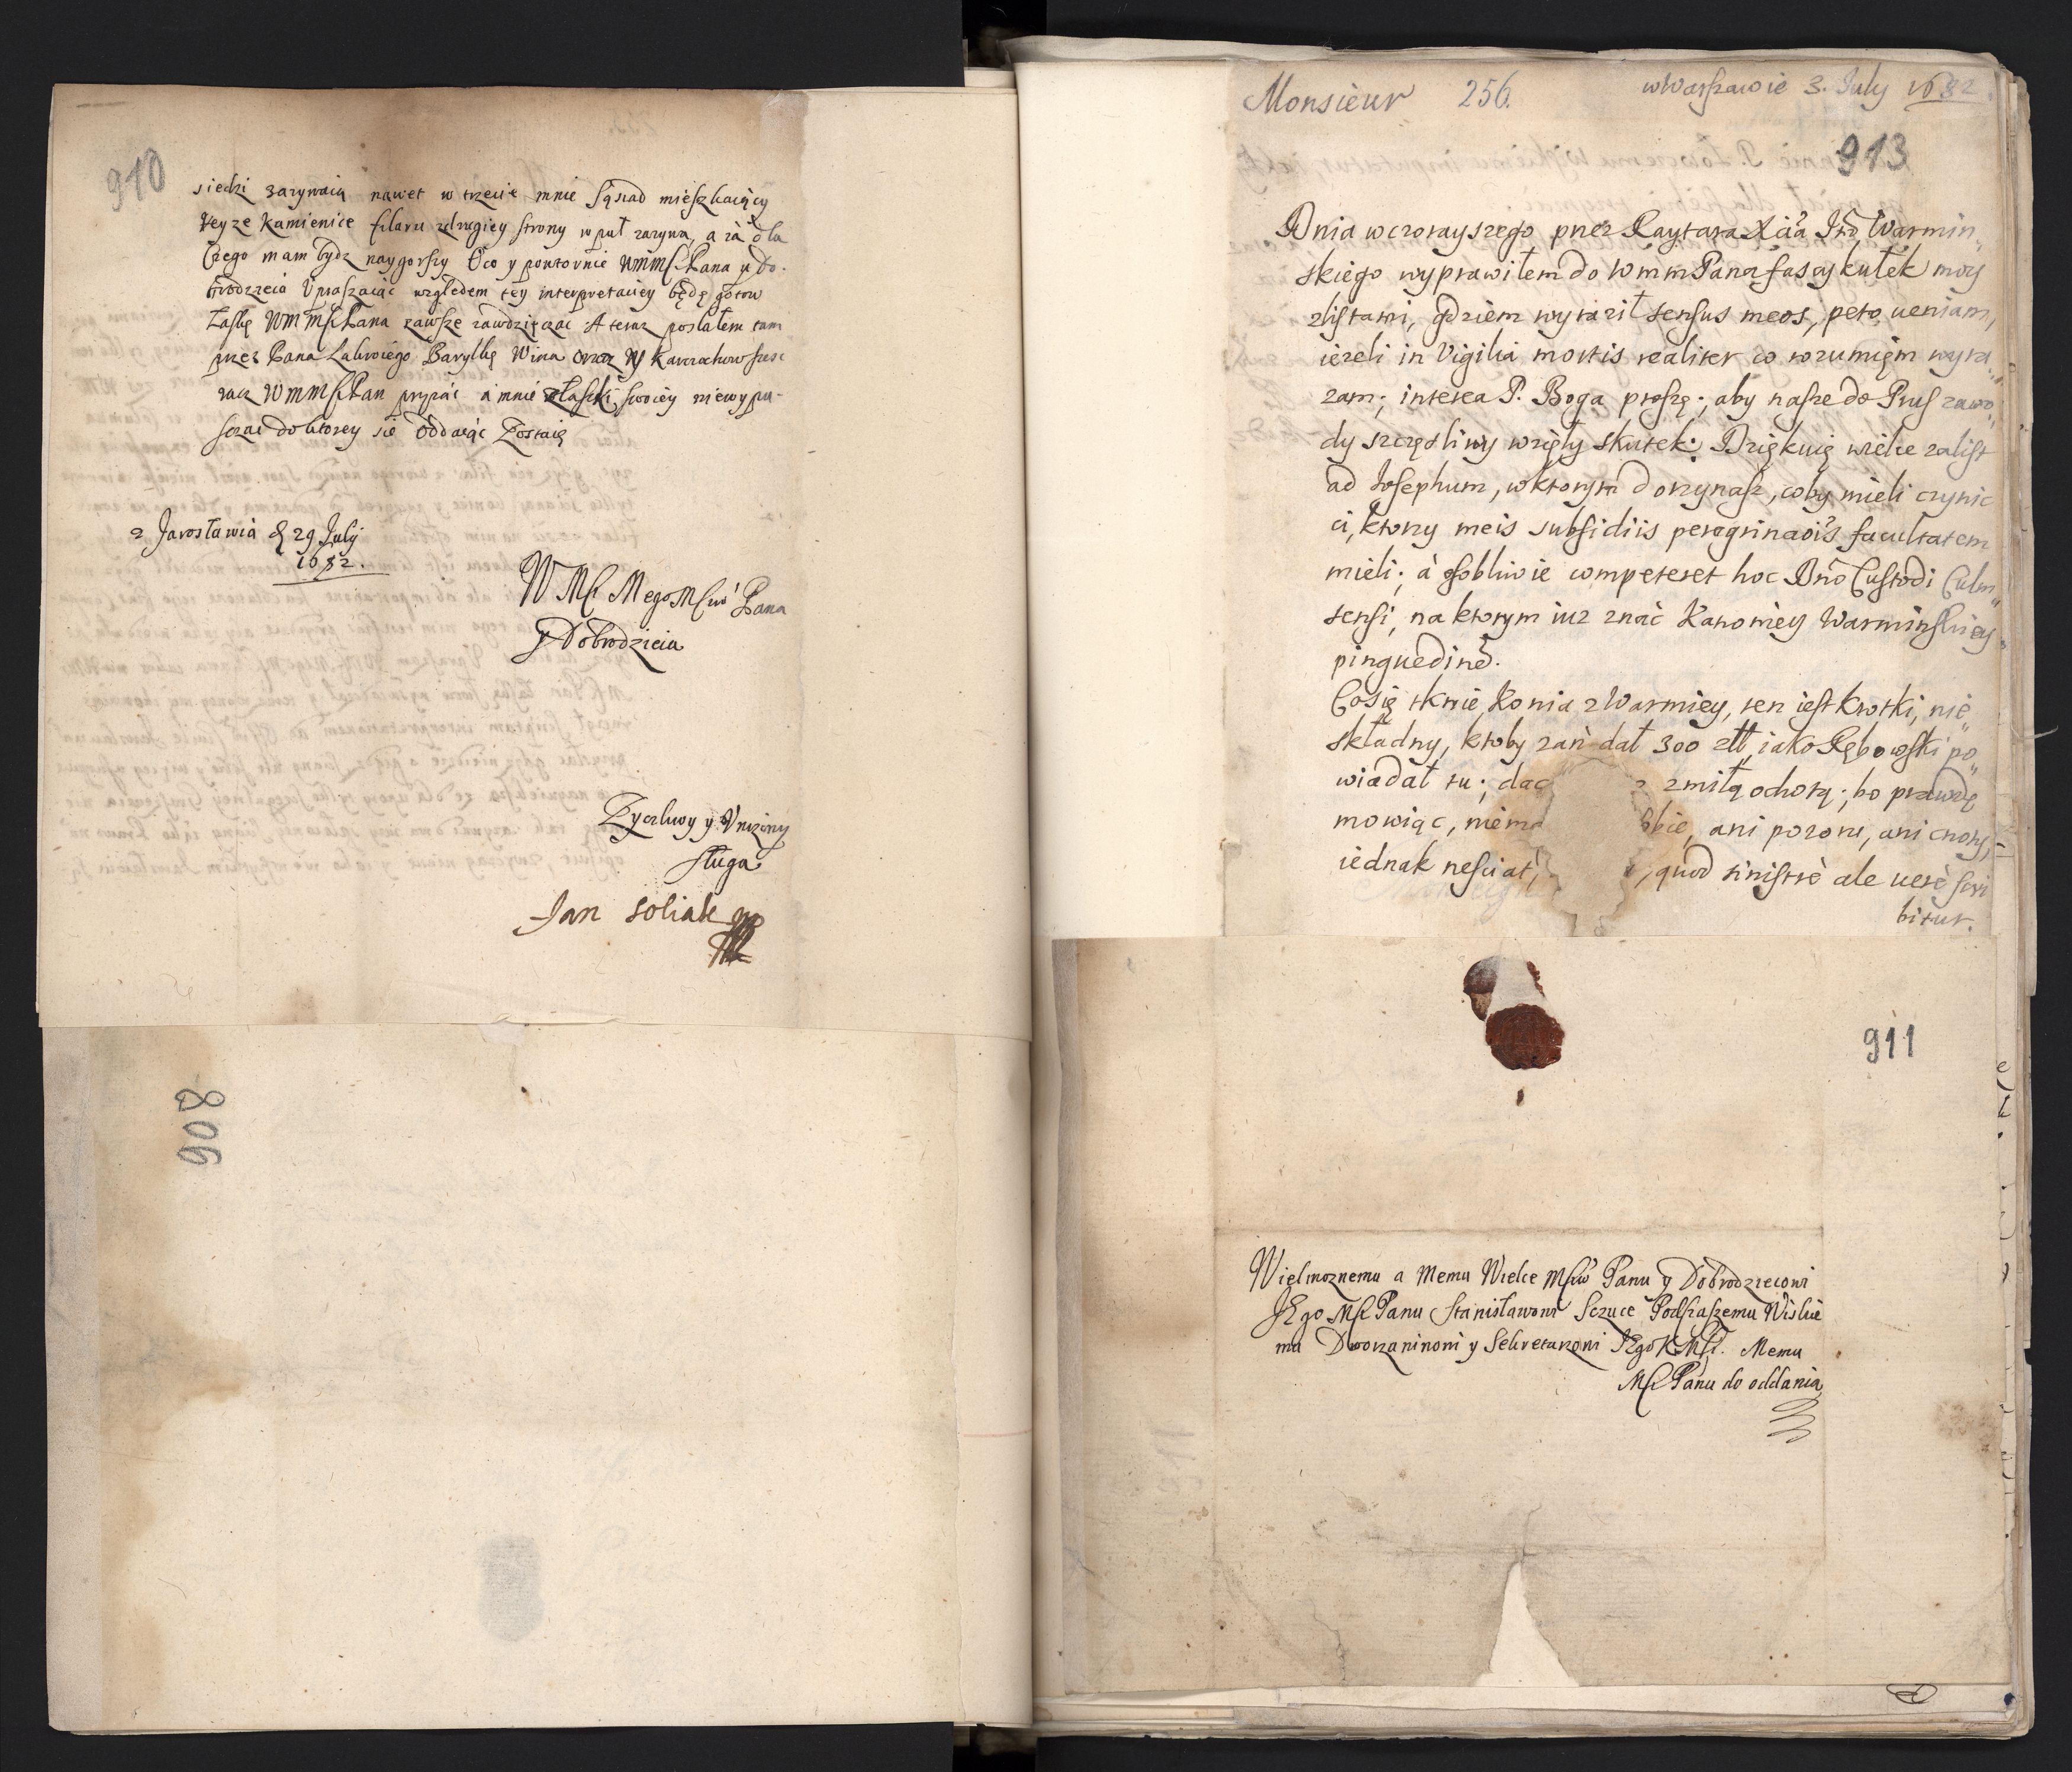 910
siedzi zarynaią nawet w trzecie mnie Sąsiad mieszkaiący
teyze Kamienice filaru zdrugiey strony w puł zaryna, a ia dla
czego mam bydz naygorszy Oco y powtornie WMMSCPana y Do-
brodzieia Upraszaiąc względem tey interpretaciey będę gotow
Łaskę WMMSCPana zawsze zawdzięczac A teraz posłałem tam
przez Pana Baryłkę Wina oraz
racz WMMSCPan przyiąc a mnie z łaski swoiey niewypu-
szczac doktorey się Oddaiąc Zostaię
z Jarosławia d 29 July
1682.
WMSC Mego MSciwo Pana
y Dobrodzieia
Zyczliwy y Unizony
sługa
Jan Soliak mp
908
Monsieur 256. w Warszawie 3. July 1682.
913
Dnia wczorayszego przez Raytara Xcia Imo Warmin„
skiego wyprawiłem do WmmPana fascykułek moy
zlistami, gdziem wyraził sensus meos, peto ueniam,
iezeli in Vigilia mortis realiter co rozumięm wyra„
zam; interea P. Boga proszę; aby nasze do Prus zawo„
dy szczęsliwy wzięły skutek. Dziękuię wielce zalist
ad Josephum, wktorym doczynasz, coby mieli czynic
ci, ktorzy meis subsidiis peregrinaois facultatem
mieli; à osobliwie competeret hoc Dno Custodi Culm„
sensi, na ktorym iuz znać Kanoniey Warminskiey
pinguedine.
Cosię tknie Konia z Warmiey, ten iest krotki, nie„
składny, ktoby zań dał 300 złł, iako Rębowski po„
wiadał tu; dac zmiłą ochotą; bo prawdę
mowiąc, niema sobie, ani pozoru, ani cnoty,
iednak nesciat, quod sinistrè ale uerè scri
bitur.
911
Wielmoznemu a Memu Wielce MSciwo Panu y Dobrodzieiowi
JEgo MSC Panu Stanisławowi Sczuce Podczaszemu Wiskie
mu Dworzaninowi y Sekretarzowi JEgo K MSCi. Memu
MSC Panu do oddania